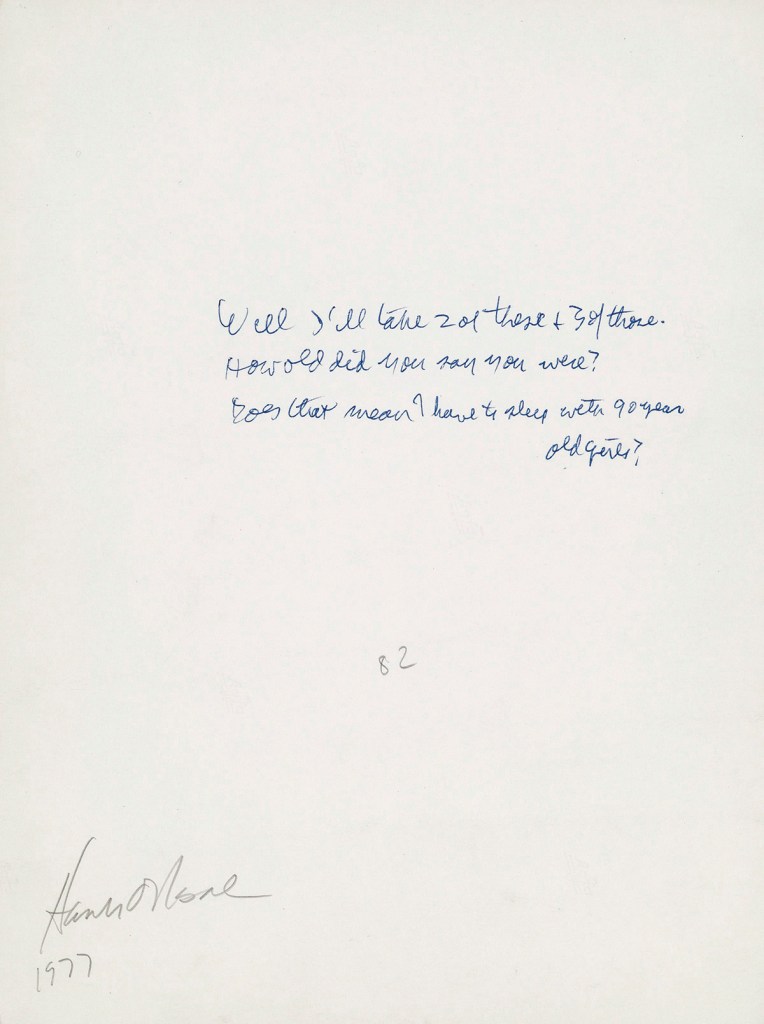 Well I'll take 2 of these & 3 of those.
How old did you say you were?
Does that mean I have to sleep with 90 year
old girls?
82
1977